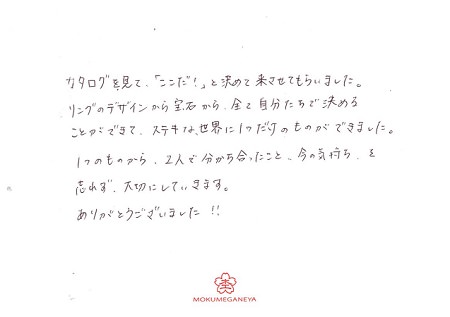 カタログを見て、「ここだ!」と決めて来させてもらいました。
リングのデザインから宝石から、全て自分たちで決める
ことができて、ステキな世界に1つだけのものができました。
1つのものから、2人で分かち合ったこと、今の気持ち、を
忘れず、大切にしていきます。
ありがとうございました!!
杢
MOKUMEGANEYA